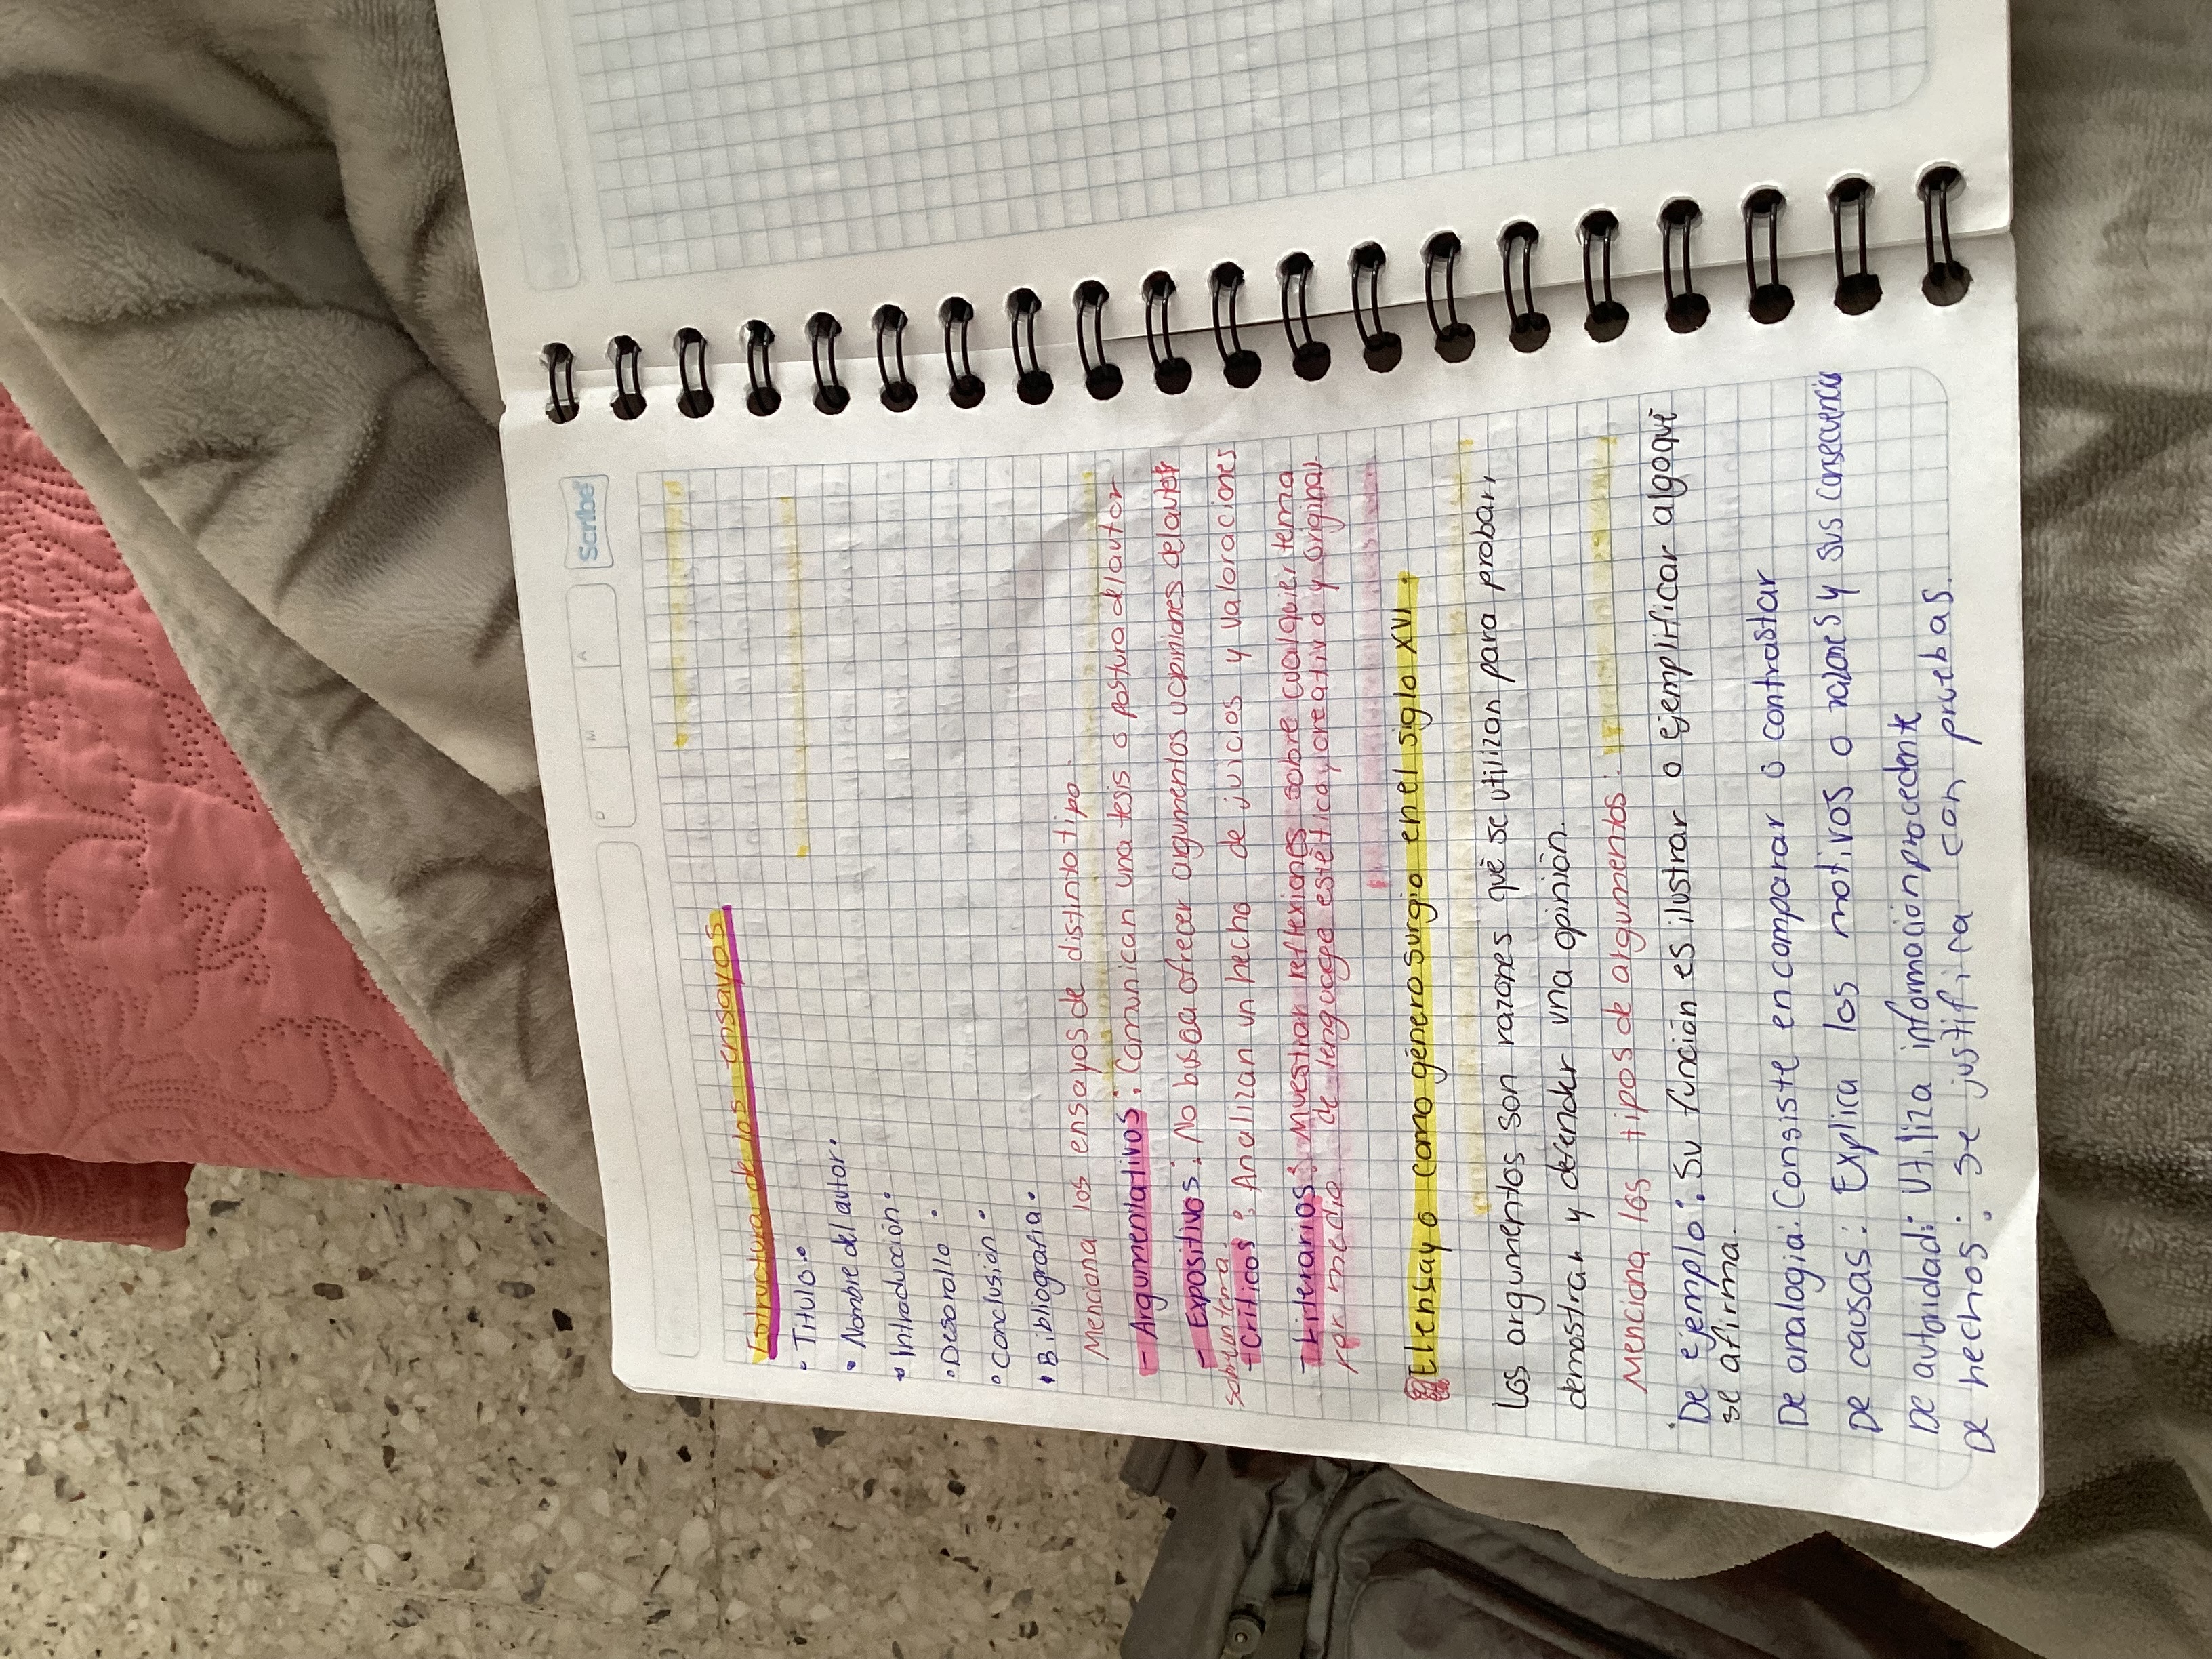 Scribe
D M A
Estructura de los ensayos.
• Titulo.
• Nombre del autor.
• Introducción.
• Desarollo.
• Conclusión.
• Bibliografia.
Menciona los ensayos de distinto tipo.
- Argumentativos: Comunican una tesis o postura del autor
- Expositivos: No busca ofrecer argumentos u opiniones del autor
sobre un tema.
- Criticos: Analizan un hecho de juicios y valoraciones
- Literarios: Muestran reflexiones sobre cualquier tema
por medio de lenguage estética y creativa y original.
El ensayo como género surgio en el siglo XVI.
Los argumentos son razones què se utilizan para probar,
demostrar y defender una opinión.
Menciona los tipos de argumentos:
De ejemplo: Su función es ilustrar o ejemplificar algo què
se afirma.
De analogia: Consiste en comparar o contrastar
De causas: Explica los motivos o razones y sus consecuencia
De autoridad: Utiliza informacion procedente
De hechos: Se justifica con pruebas.